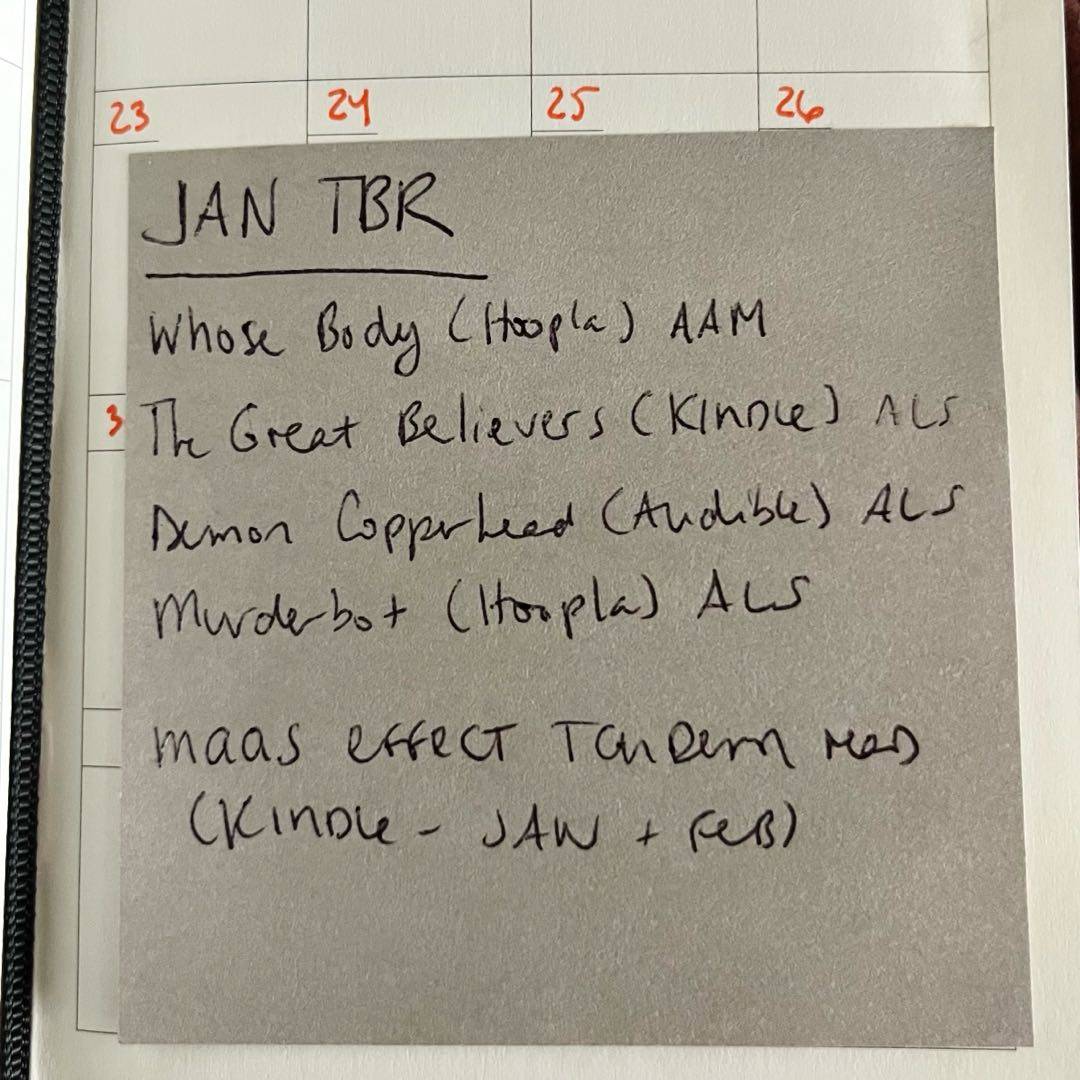 23 24 25 26
JAN TBR
Whose Body (Hoopla) AAM
3
The Great Believers (Kindle) ALS
Demon Copperhead (Audible) ALS
Murderbot (Hoopla) ALS
maas effect Tandem read
(Kindle - JAN + FEB)